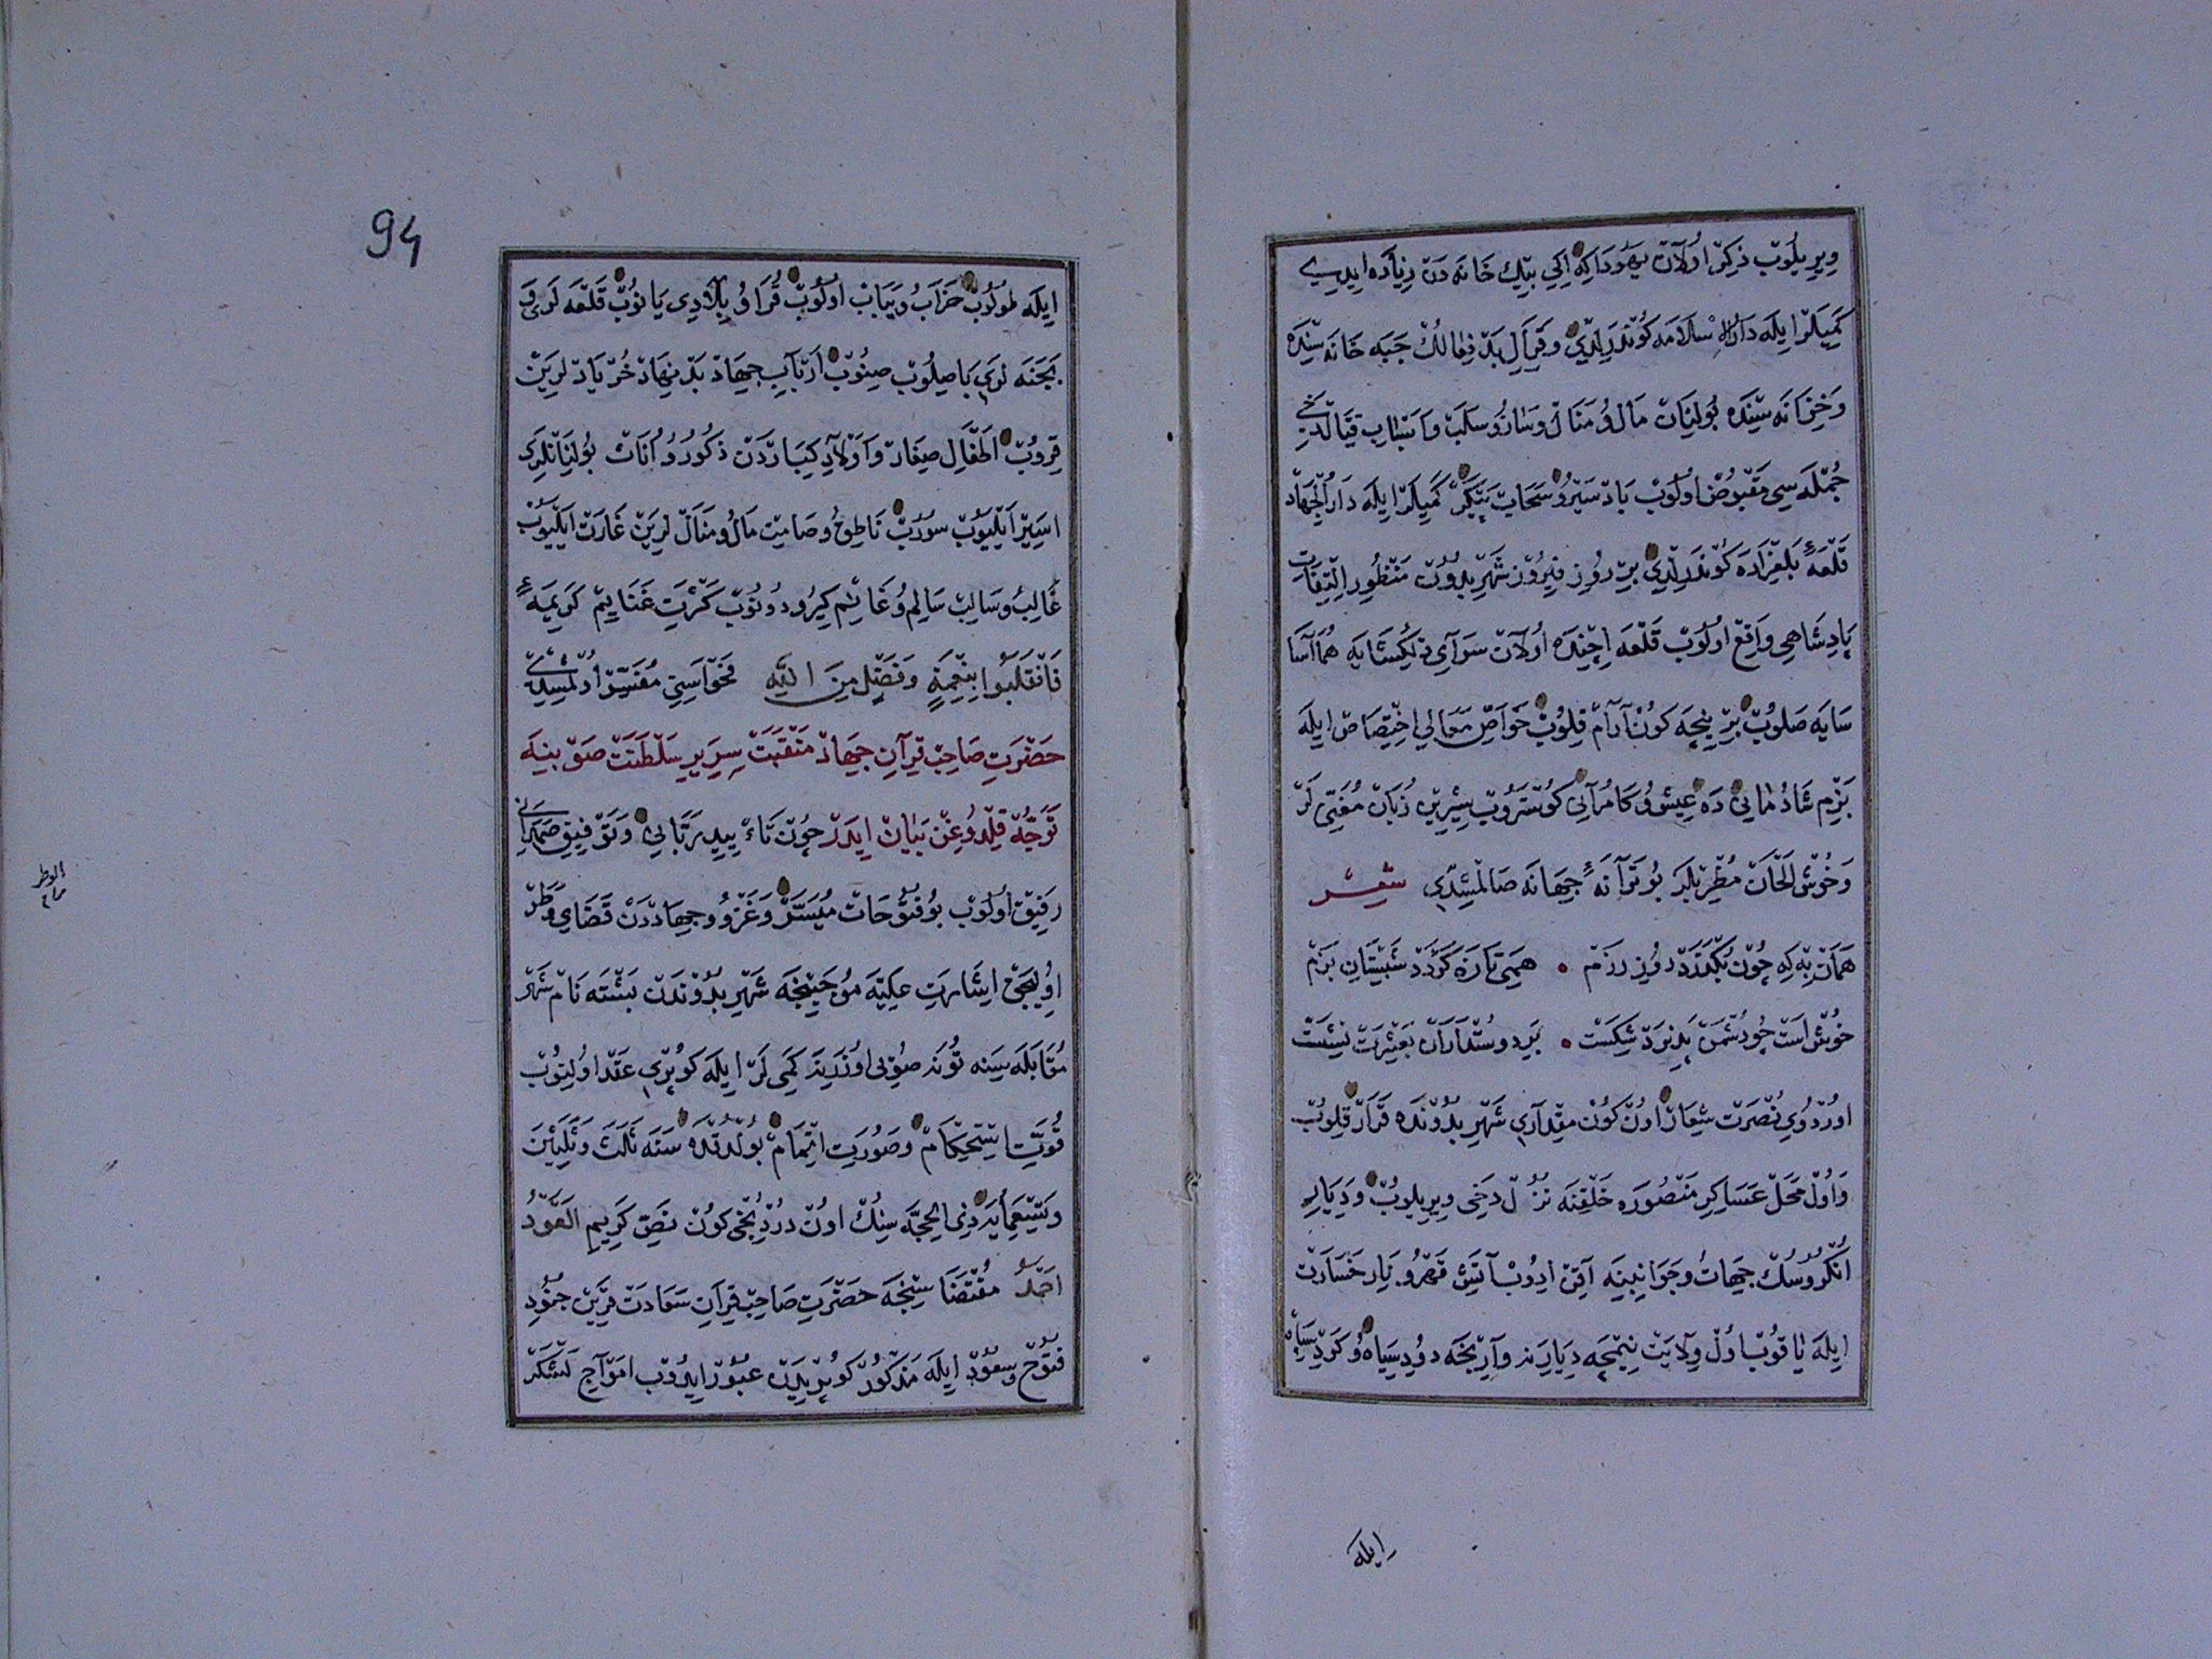 ویریلوب ذکر اولان یهودا که ایکی بیك خانه دن زیاده ایدی
کمیلر ایله دار السلامه کوندرلدی و قرال بد فعالك جبه خانه سنده
و خزانه سنده بولنان مال و منال و ساز و سلب و اسباب قتالدن
جمله سی مقبوض اولوب باد سیر و سحاب پیکر کمیلر ایله دار الجهاد
قلعهٔ بلغراده کوندرلدی بر روز فیروز شهر بدون منظور التفات
پادشاهی واقع اولوب قلعه ایچنده اولان سرای دلکشایه هما آسا
سایه صلوب بر نیجه کون آرام قلوب خواص معالی اختصاص ایله
بزم شادمانی ده عیش و کامرانی کوستروب شیرین زبان مغنی لر
و خوش الحان مطربلر بو ترانهٔ جهانه صالمشدی شعر
همان به که چون بکذرد روز رزم • همی تازه کردد شبستان بزم
خوش است چو دشمن پذیرد شکست • بر دوستداران بعشرت نشست
اوردوی نصرت شعار اون کون مقداری شهر بدونده قرار قلوب
و اول محل عساکر منصوره خلقنه نزل دخی ویریلوب و دیار
انکروسك جهات و جوانبینه آقین ایدوب آتش قهر و نار خسارت
ایله یاقوب اول ولایت نیمچه دیارینه وارنجه دود سیاه و کرد سپاه
ایله
94
ایله طولوب خراب و یباب اولوب قرا و بلادی یانوب قلعه لری و
بجنه لری باصیلوب صنوب ارباب جهاد بد نهاد خریادلرین
قروب اطفال صغار و اولاد کباردن ذکور و اناث بولنانلری
اسیر ایلیوب سوروب ناطق و صامت مال و منال لرین غارت ایلیوب
غالب و سالب سالم و غانم کیرو دونوب کثرت غنایم کریمهٔ
فانقلبوا بنعمة و فضل من الله فحواسین مفسر اولمشدی
حضرت صاحب قران جهاد منقبت سریر سلطنت صوبینه
توجه قلدوغن بیان ایدر چون تأیید ربانی و توفیق صمدانی
رفیق اولوب بو فتوحات میسر و غزو و جهاددن قضای وطر
اولیجق اشارت علیه موجبنجه شهر بدوندن پشته نام شهر
مقابله سینه تونه صویی اوزرینه کمی لر ایله کوپری عقد اولنوب
قوت استحکام و صورت اتمام بولدقده سنه ثلث و ثلثین
و تسعمایه ذی الحجه سنك اون دردنجی کون نص کریم العود
احمد مقتضاسنجه حضرت صاحب قران سعادت قرین جنود
فتوح و سعود ایله مذکور کوپریدن عبور ایدوب امواج لشکر